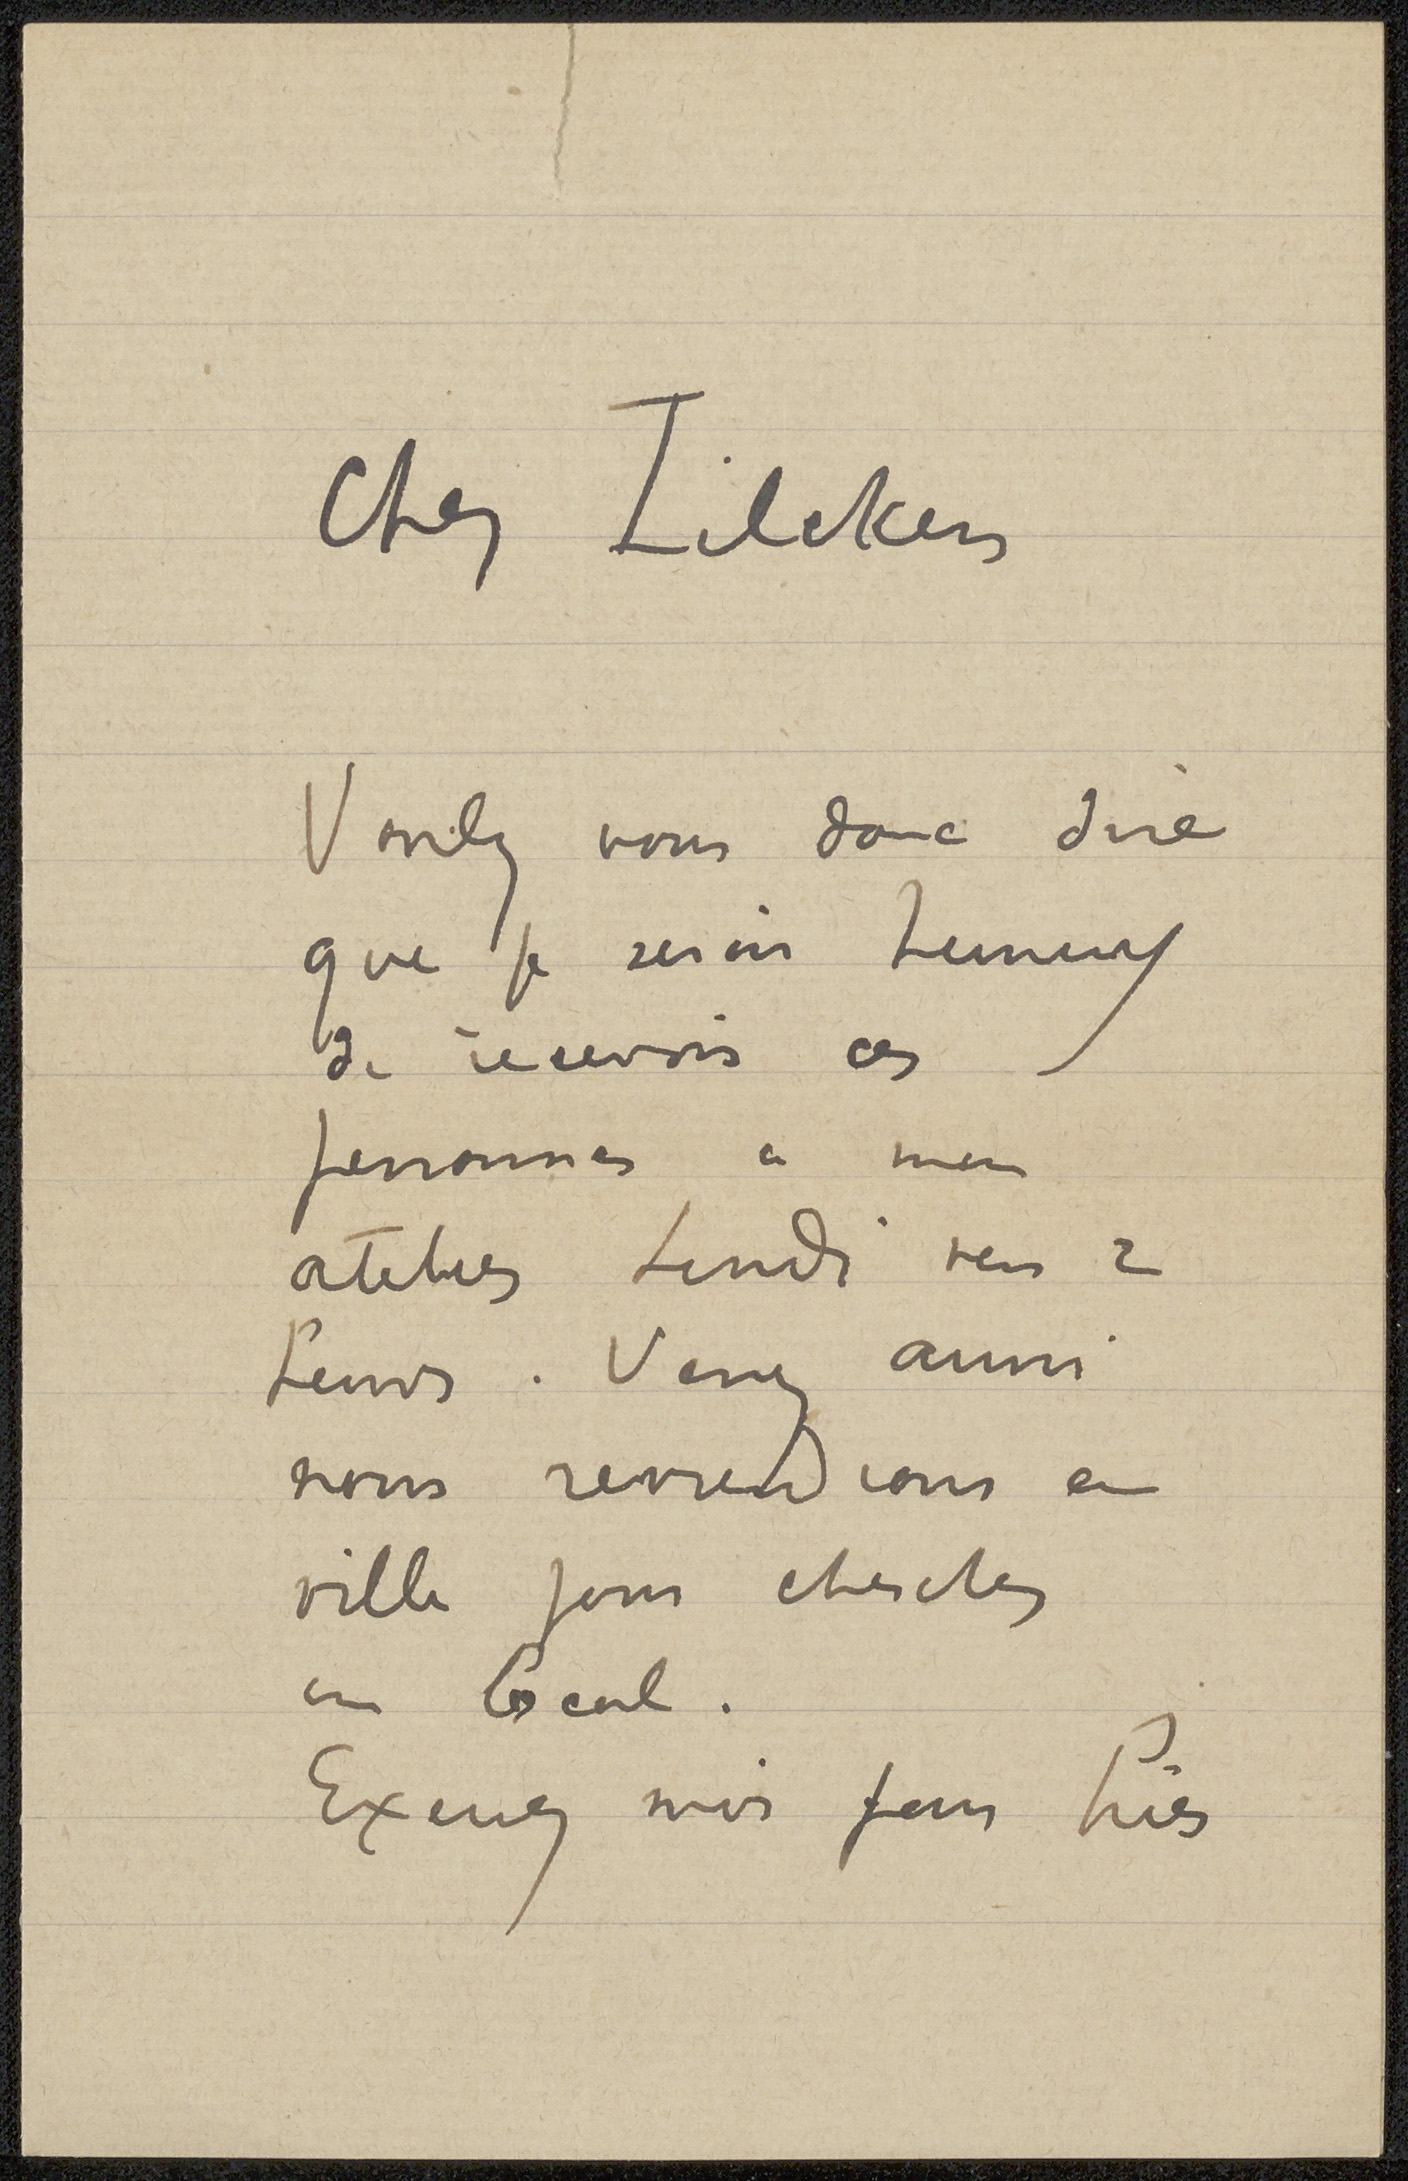 Cher Zilcken
Voulez vous donc dire
que je serais heureux
de recevoir ces
personnes a mon
atelier Lundi vers 2
heures. Venez aussi
nous reviendrons en
ville pour chercher
un local.
Excusez moi pour hier